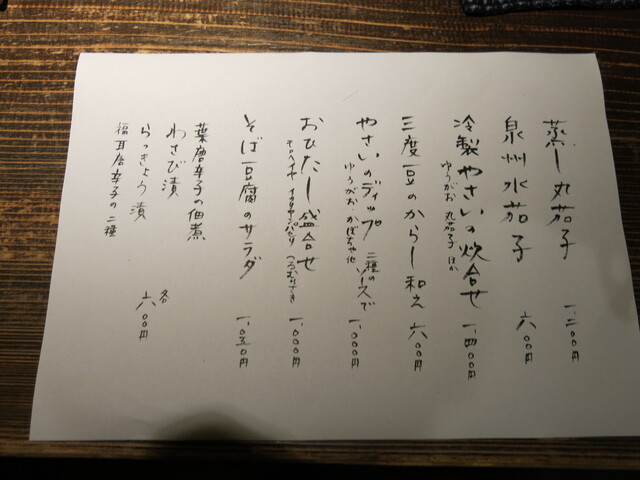 蒸し丸茄子 一、二〇〇円
泉州水茄子 六〇〇円
冷製やさいの炊合せ 一、四〇〇円
ゆうがお 丸茄子 ほか
三度豆のからし和え 六〇〇円
やさいのディップ 二種のソースで 一、〇〇〇円
ゆうがお かぼちゃ他
おひたし盛合せ 一、〇〇〇円
モロヘイヤ つるむらさき
そば豆腐のサラダ 一、〇五〇円
葉唐辛子の佃煮
わさび漬
らっきょう漬
福耳唐辛子の二種
各六〇〇円